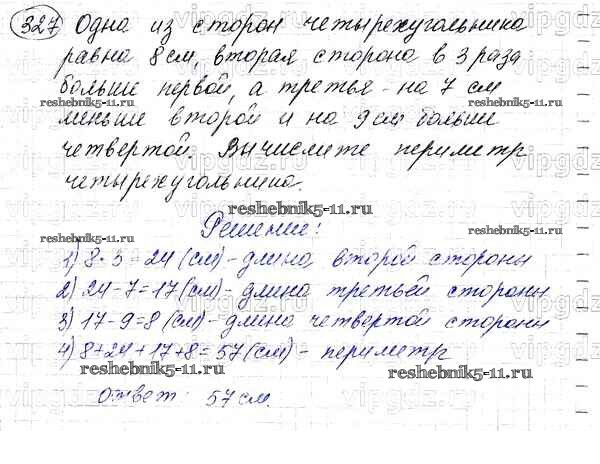 327 Одна из сторон четырехугольника
равна 8 см, вторая сторона в 3 раза
больше первой, а третья - на 7 см
reshebnik5-11.ru reshebnik5-11.ru
меньше второй и на 9 см больше
четвертой. Вычислите периметр
четырехугольника.
reshebnik5-11.ru
Решение:
reshebnik5-11.ru reshebnik5-11.ru
1) 8·3=24 (см) - длина второй стороны
2) 24-7=17 (см) - длина третьей стороны
3) 17-9=8 (см) - длина четвертой стороны
4) 8+24+17+8=57 (см) - периметр
reshebnik5-11.ru reshebnik5-11.ru
Ответ: 57 см.